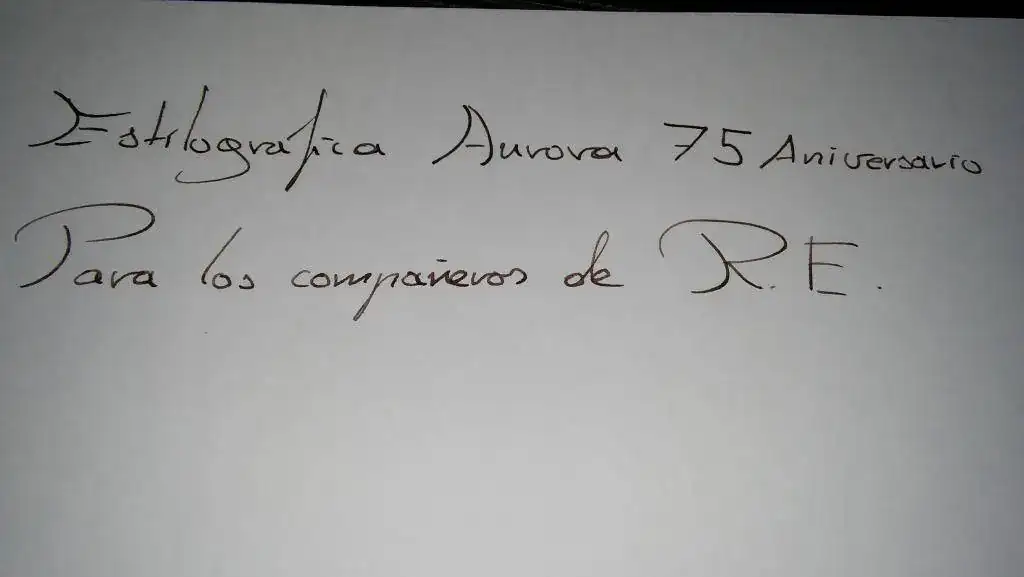 Estilografica Aurora 75 Aniversario
Para los compañeros de R.E.